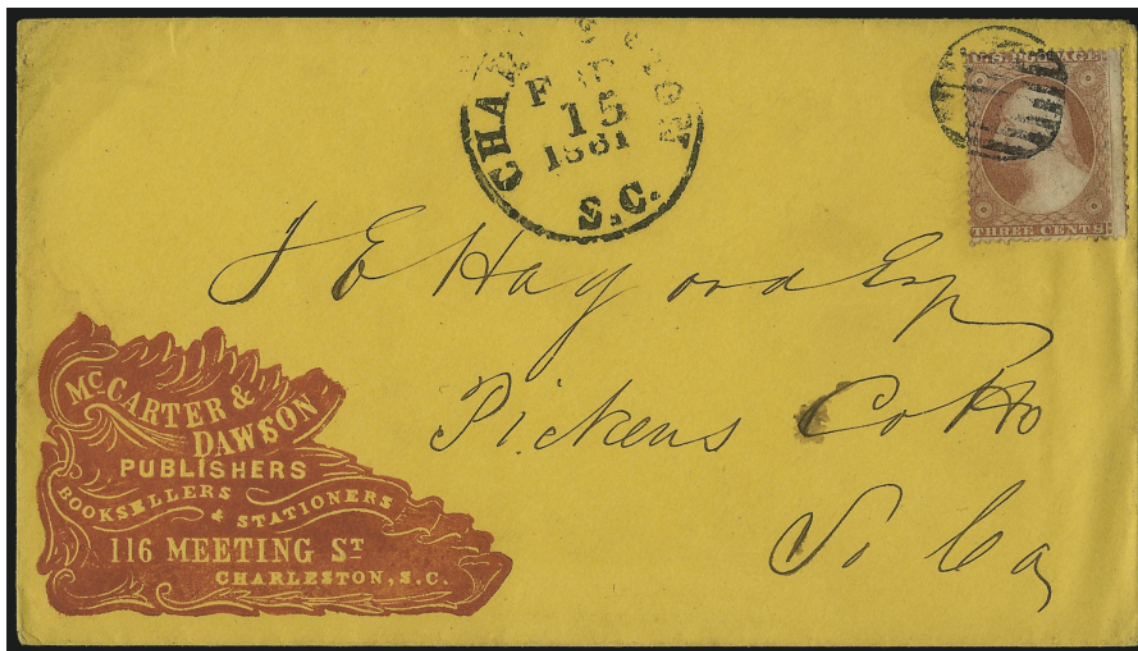 CHARLESTON
15
1861
S.C.
THREE CENTS
J E Hagood Esq
Pickens Co Ho
So Ca
McCARTER &
DAWSON
PUBLISHERS
BOOKSELLERS
& STATIONERS
116 MEETING ST
CHARLESTON, S.C.